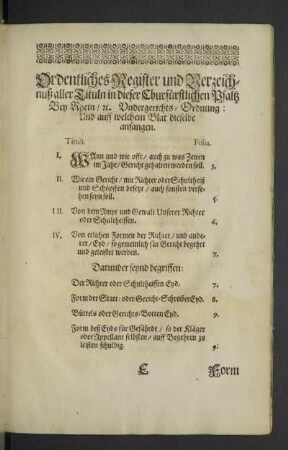 Ordentliches Register und Verzeich-
nuß aller Tituln in dieser Churfürstlichen Pfaltz
Bey Rhein / ꝛc. Undergerichts-Ordnung:
Und auff welchem Blat dieselbe
anfangen.
Tituli. Folia.
I. WAnn und wie offt / auch zu was Zeiten
im Jahr / Gericht gehalten werden soll. 5.
II. Wie ein Gericht / mit Richter oder Schultheiß
und Schöpffen besetzt / auch sonsten verse-
hen seyn soll.
III. Von dem Ampt und Gewalt Unserer Richter
oder Schultheissen. 6.
IV. Von etlichen Formen der Richter / und ande-
rer / Eyd / so gemeinlich für Gericht begehrt
und geleistet werden. 7.
Darunder seynd begriffen:
Der Richter oder Schultheissen Eyd. 7.
Form der Statt- oder Gericht-Schreiber Eyd. 8.
Büttels oder Gerichts-Botten Eyd. 9.
Form deß Eyds für Gefährde / so der Kläger
oder Appellant selbsten / auff Begehren zu
leisten schuldig. 9.
C Form